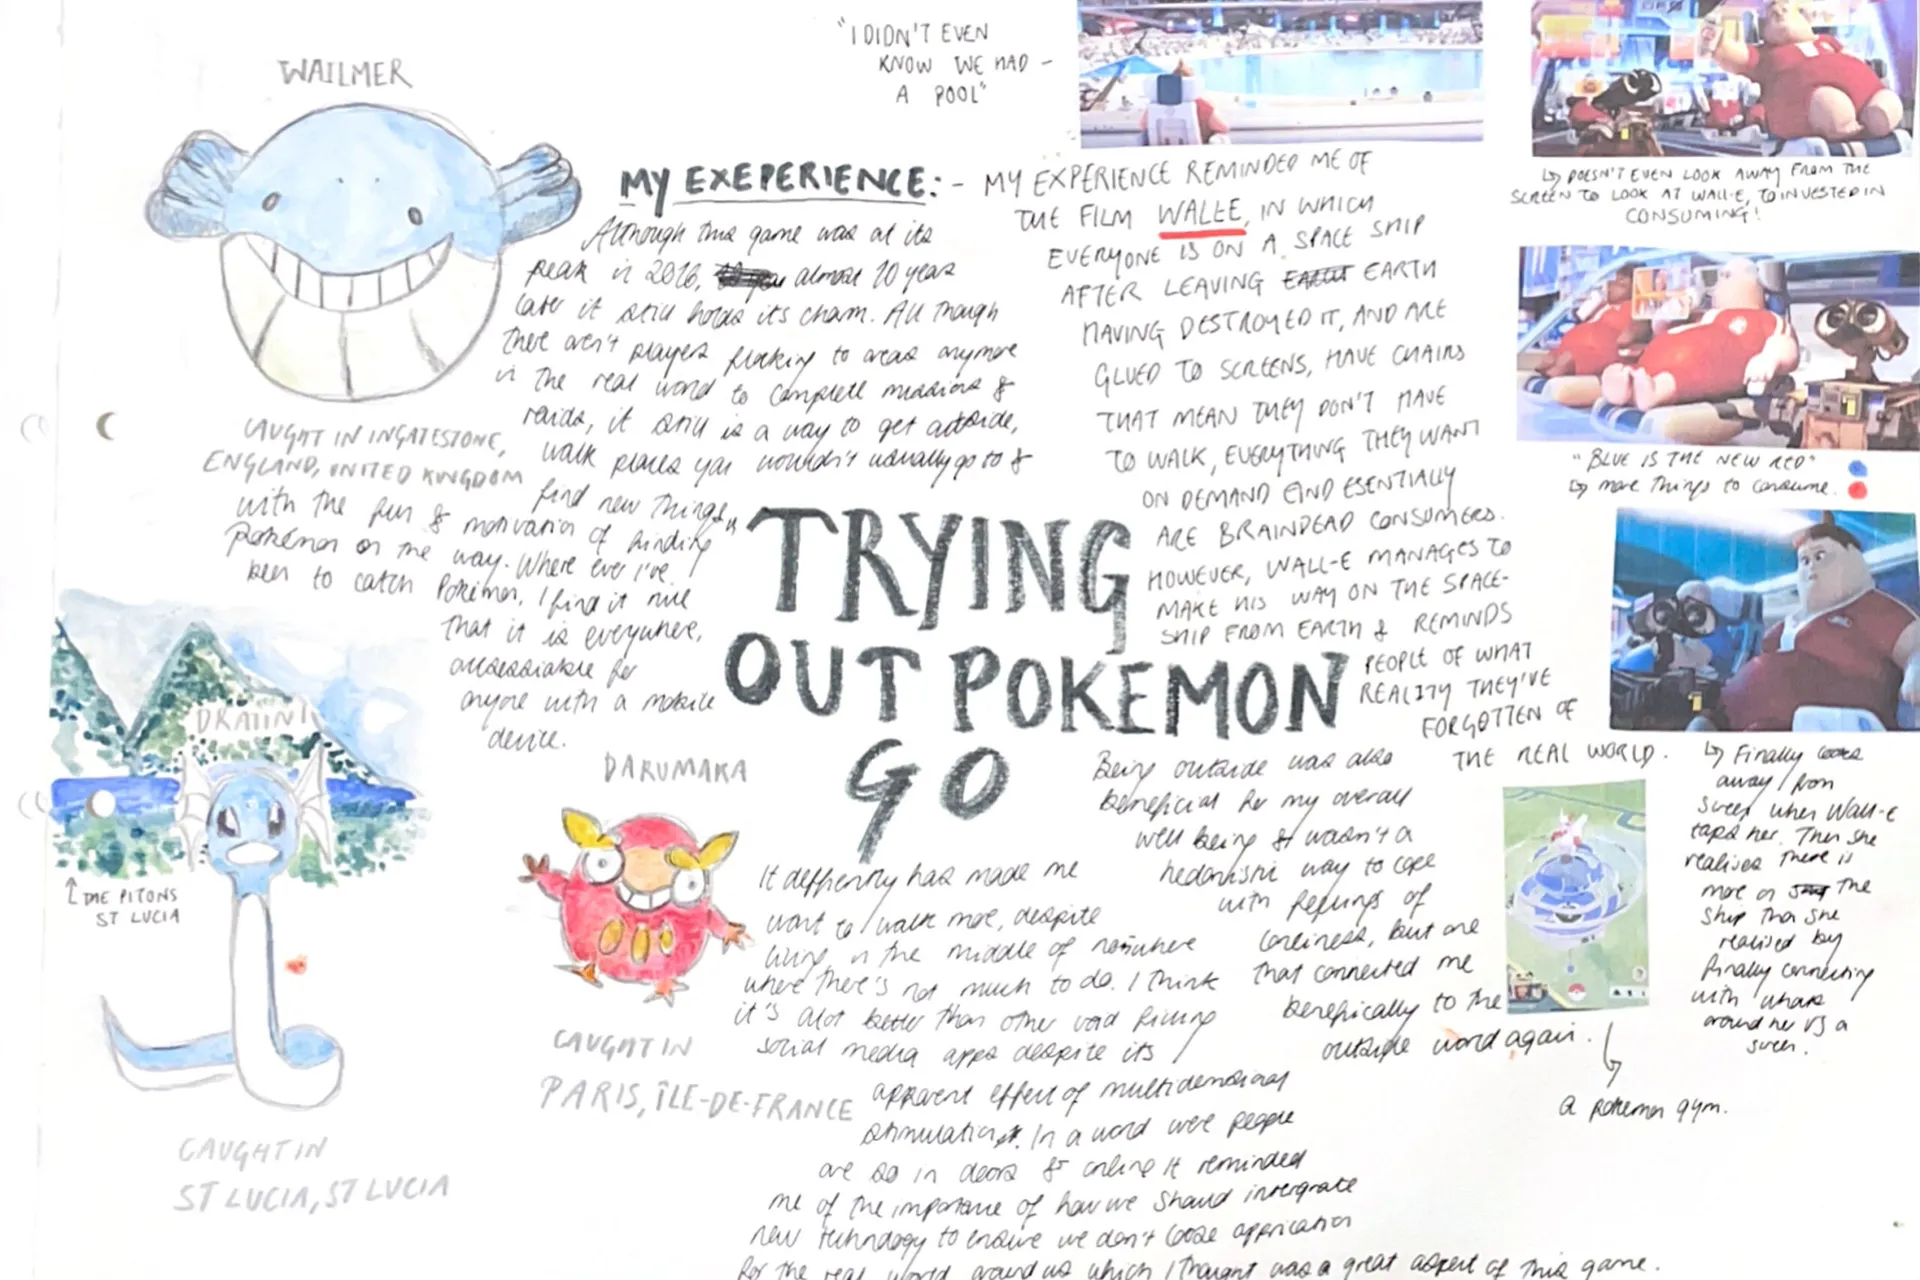 WAILMER
"I DIDN'T EVEN
KNOW WE HAD -
A POOL"
MY EXEPERIENCE:
Although this game was at its
peak in 2016, almost 10 years
later it still holds its charm. All though
there aren't players flocking to areas anymore
in the real world to complete missions &
raids, it still is a way to get outside,
walk places you wouldn't usually go to &
find new things
with the fun & motivation of finding
pokemon on the way. Where ever I've
been to catch Pokemon, I find it nice
that it is everywhere,
accessable for
anyone with a mobile
device.
CAUGHT IN INGATESTONE,
ENGLAND, UNITED KINGDOM
- MY EXPERIENCE REMINDED ME OF
THE FILM WALLE, IN WHICH
EVERYONE IS ON A SPACE SHIP
AFTER LEAVING EARTH
HAVING DESTROYED IT, AND ARE
GLUED TO SCREENS, HAVE CHAIRS
THAT MEAN THEY DON'T HAVE
TO WALK, EVERYTHING THEY WANT
ON DEMAND AND ESENTIALLY
ARE BRAINDEAD CONSUMERS.
HOWEVER, WALL-E MANAGES TO
MAKE HIS WAY ON THE SPACE-
SHIP FROM EARTH & REMINDS
PEOPLE OF WHAT
REALITY THEY'VE
FORGOTTEN OF
THE REAL WORLD.
↳ DOESN'T EVEN LOOK AWAY FROM THE
SCREEN TO LOOK AT WALL-E, TO INVESTED IN
CONSUMING!
"BLUE IS THE NEW RED"
↳ more things to consume.
↳ Finally looks
away from
screen when Wall-E
taps her. Then she
realises there is
more on the
ship than she
realised by
finally connecting
with whats
around her vs a
screen.
"TRYING
OUT POKEMON
GO
DRATINI
↑ THE PITONS
ST LUCIA
CAUGHT IN
ST LUCIA, ST LUCIA
DARUMAKA
CAUGHT IN
PARIS, ÎLE-DE-FRANCE
It deffienrly has made me
want to walk more, despite
living in the middle of nowhere
where there's not much to do. I think
it's alot better than other void filling
social media apps despite its
apparent effect of multidemsional
stimulation. In a word were people
are so in doors & online it reminded
me of the importance of how we should intergrate
new technology to ensure we don't loose
for the real world around us which I thought was a great aspect of this game.
Being outside was also
beneficial for my overall
well being & wasn't a
hedonistic way to cope
with feelings of
loneliness, but one
that connected me
benefically to the
outside word again.
a pokemon gym.